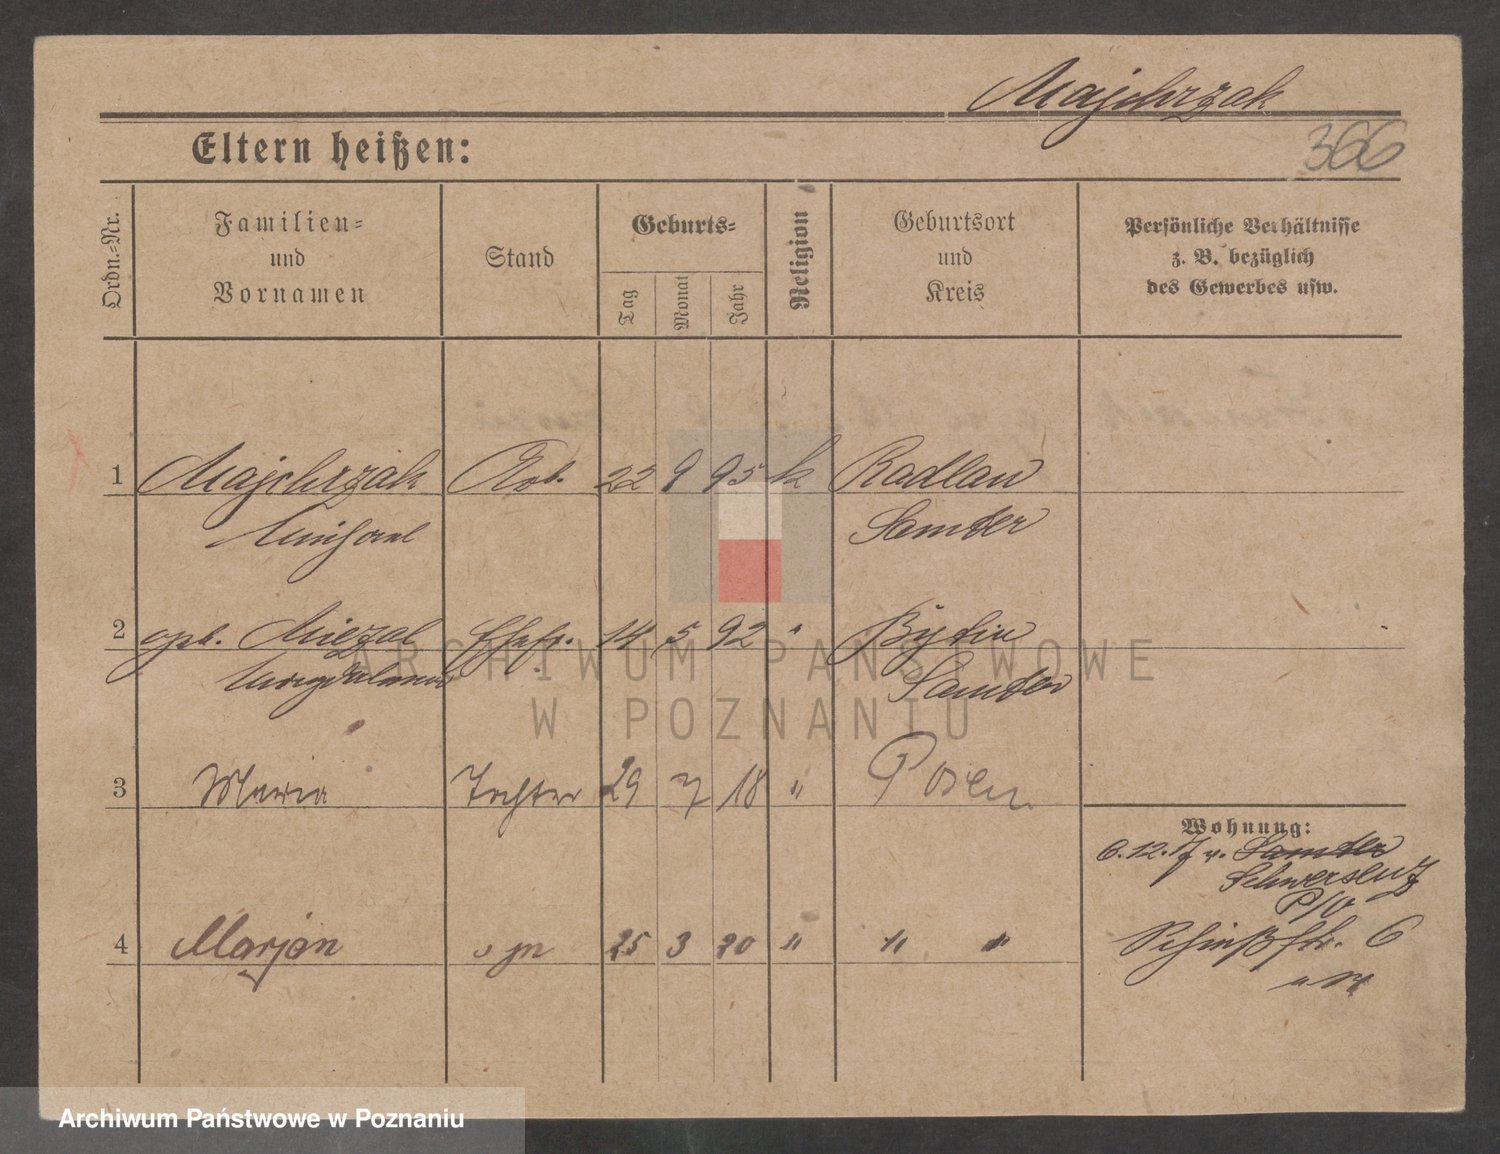 Majchrzak
366
Eltern heißen:
Ordn.-Nr.
Familien- und Vornamen
Stand
Geburts-
Tag
Monat
Jahr
Religion
Geburtsort und Kreis
Persönliche Verhältnisse z. B. bezüglich des Gewerbes usw.
1 Majchrzak Arb. 22 9 95 k Radlau
Michael Samter
2 geb. Miezal Ehefr. 14 5 92 " Bytin
Magdalena Samter
3 Maria Tochter 29 7 18 " Posen
Wohnung:
6.12.17 v. Samter
Schwersenz
P/O
4 Marjan 25 3 20 " " "
Schießstr. 6
ARCHIWUM PAŃSTWOWE
W POZNANIU
Archiwum Państwowe w Poznaniu